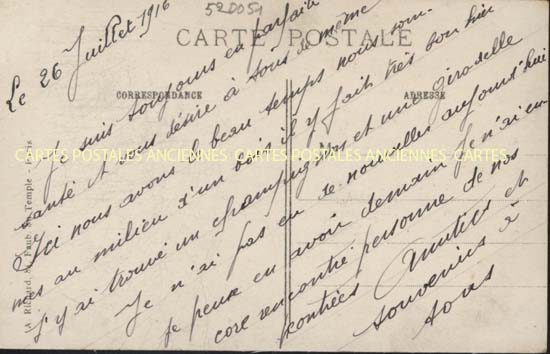 52D051
CARTE POSTALE
CORRESPONDANCE
ADRESSE
Le 26 Juillet 1916
Je suis toujours en parfaite
santé et vous désire à tous de même
Ici nous avons le beau temps nous som-
mes au milieu d'un bois il y fait très bon hier
j'y ai trouvé un champignon et une girodelle
Je n'ai pas eu de nouvelles aujourd'hui
je pense en avoir demain je n'ai en-
core rencontré personne de nos
contrées Amitiés et
souvenirs à
tous
CARTES POSTALES ANCIENNES CARTES POSTALES ANCIENNES CARTES
Faub. du Temple - Paris